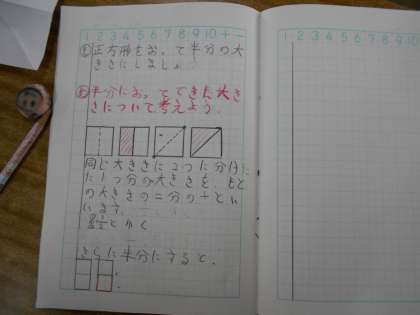 1 2 3 4 5 6 7 8 9 10 + −
も 正方形をおって半分の大
きさにしましょう
め 半分におってできた大き
さについて考えよう。
同じ大きさに2つに分けた
1つ分の大きさを、もと
の大きさの二分の一とい
います。
とかく
さらに半分にすると、
1 2 3 4 5 6 7 8 9 10